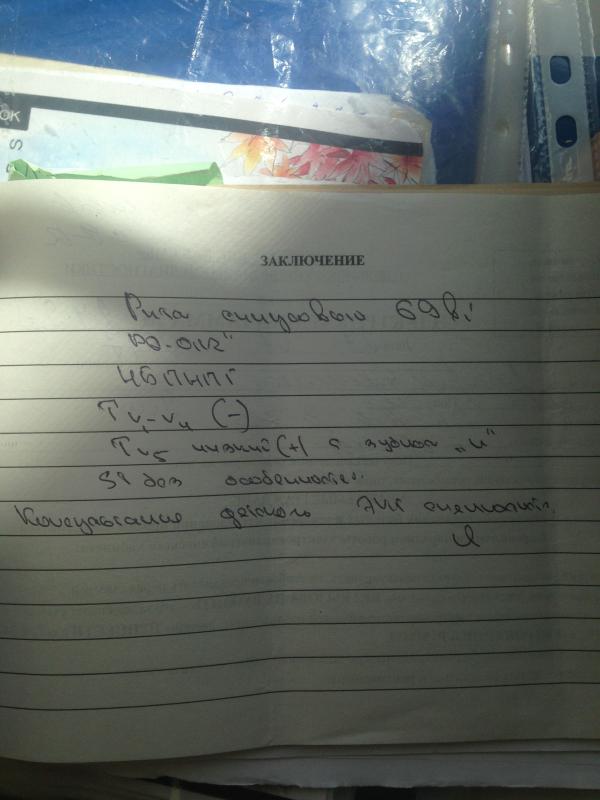 ОК
S
ЗАКЛЮЧЕНИЕ
Ритм синусовый 69 в 1'
PQ-0,12"
НБПНПГ
T V1-V4 (-)
T V5 низкий (+) с зубцом "U"
ST без особенностей
Консультация детского ЭКГ специалиста